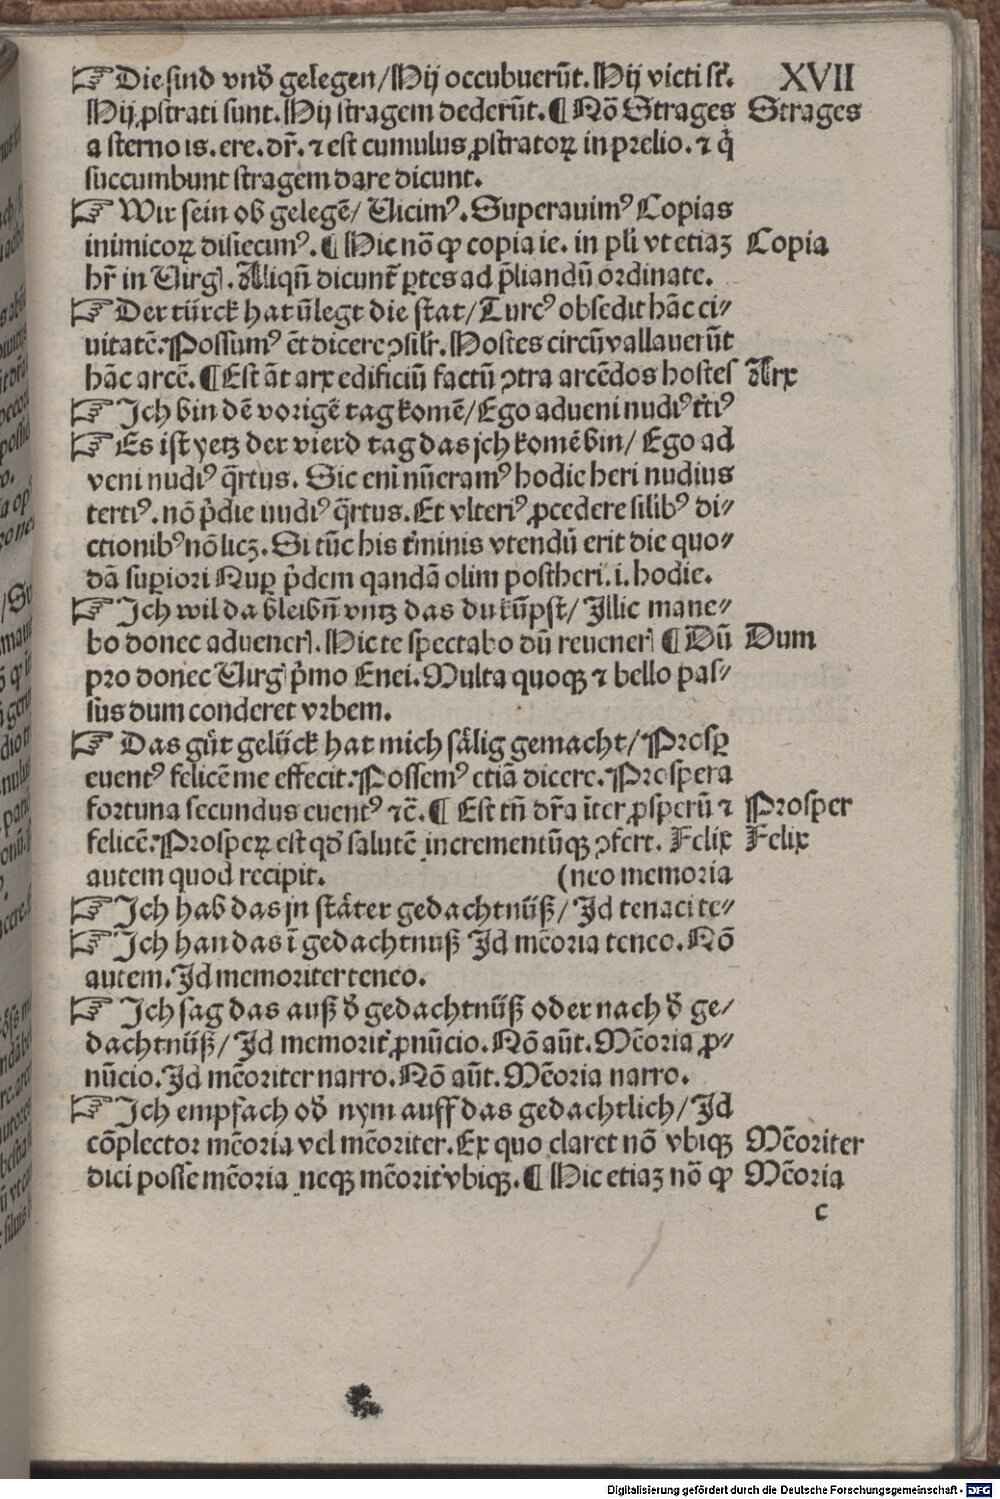 ☞ Die sind vnd̕ gelegen/Hij occubuerūt. Hij victi sr̄. XVII
Hij ꝓstrati sunt. Hij stragem dederūt. ¶ Nō Strages Strages
a sterno is. ere. dr̄. ⁊ est cumulus ꝓstratoꝝ in prelio. ⁊ q̇
succumbunt stragem dare dicunt.
☞ Wir sein ob gelegē/ Vicimꝰ. Superauimꝰ Copias
inimicoꝝ disiecimꝰ. ¶ Hic nō ꝙ copia ie. in pli vt etiaꝫ Copia
hr̄ in Virgꝭ. Aliqn̄ dicunt̄ ꝑtes ad p̄liandū ordinate.
☞ Der türck hat v̄legt die stat/ Turcꝰ obsedit hāc ci⸗
uitatē. Possumꝰ ēt dicere ꝯsilr̄. Hostes circūvallauerūt
hāc arcē. ¶ Est āt arx edificiū factū ꝯtra arcēdos hostes Arx
☞ Ich bin dē vorigē tag komē/ Ego adueni nudiꝰ t̓tiꝰ
☞ Es ist yetz der vierd tag das jch komē bin/ Ego ad
veni nudiꝰ q̄rtus. Sic eni nūeramꝰ hodie heri nudius
tertiꝰ. nō p̓die nudiꝰ q̄rtus. Et vlteriꝰ ꝓcedere silibꝰ di⸗
ctionibꝰ nō licꝫ. Si tūc his t̓minis vtendū erit die quo⸗
dā suꝑiori Nuꝑ p̓dem qandā olim postheri. i. hodie.
☞ Ich wil da bleibn̄ vntz das du kūpst/ Illic mane⸗
bo donec aduenerꝭ. Hic te spectabo dū reuenerꝭ ¶ Dū Dum
pro donec Virgꝭ p̓mo Enei. Multa quoqꝫ ⁊ bello pas⸗
sus dum conderet vrbem.
☞ Das gůt gelück hat mich sålig gemacht/ Prosꝑ
euentꝰ felicē me effecit. Possemꝰ etiā dicere. Prospera
fortuna secundus euentꝰ ⁊c̄. ¶ Est tn̄ dr̄a īter ꝓsperū ⁊ Prosper
felicē. Prosperꝝ est qd̓ salutē incrementūqꝫ ꝯfert. Felix Felix
autem quod recipit. (neo memoria
☞ Ich hab das jn ståter gedachtnüß/ Id tenaci te⸗
☞ Ich han das ī gedachtnuß Id mēoria teneo. Nō
autem. Id memoriter teneo.
☞ Ich sag das auß d̕ gedachtnüß oder nach d̕ ge⸗
dachtnüß/ Id memorit̓ ꝓnūcio. Nō aūt. Mēoria ꝓ⸗
nūcio. Id mēoriter narro. Nō aūt. Mēoria narro.
☞ Ich empfach od̕ nym auff das gedachtlich/ Id
cōplector mēoria vel mēoriter. Ex quo claret nō vbiqꝫ Mēoriter
dici posse mēoria neqꝫ mēorit̓ vbiqꝫ. ¶ Hic etiaꝫ nō ꝙ Mēoria
c
Digitalisierung gefördert durch die Deutsche Forschungsgemeinschaft - DFG